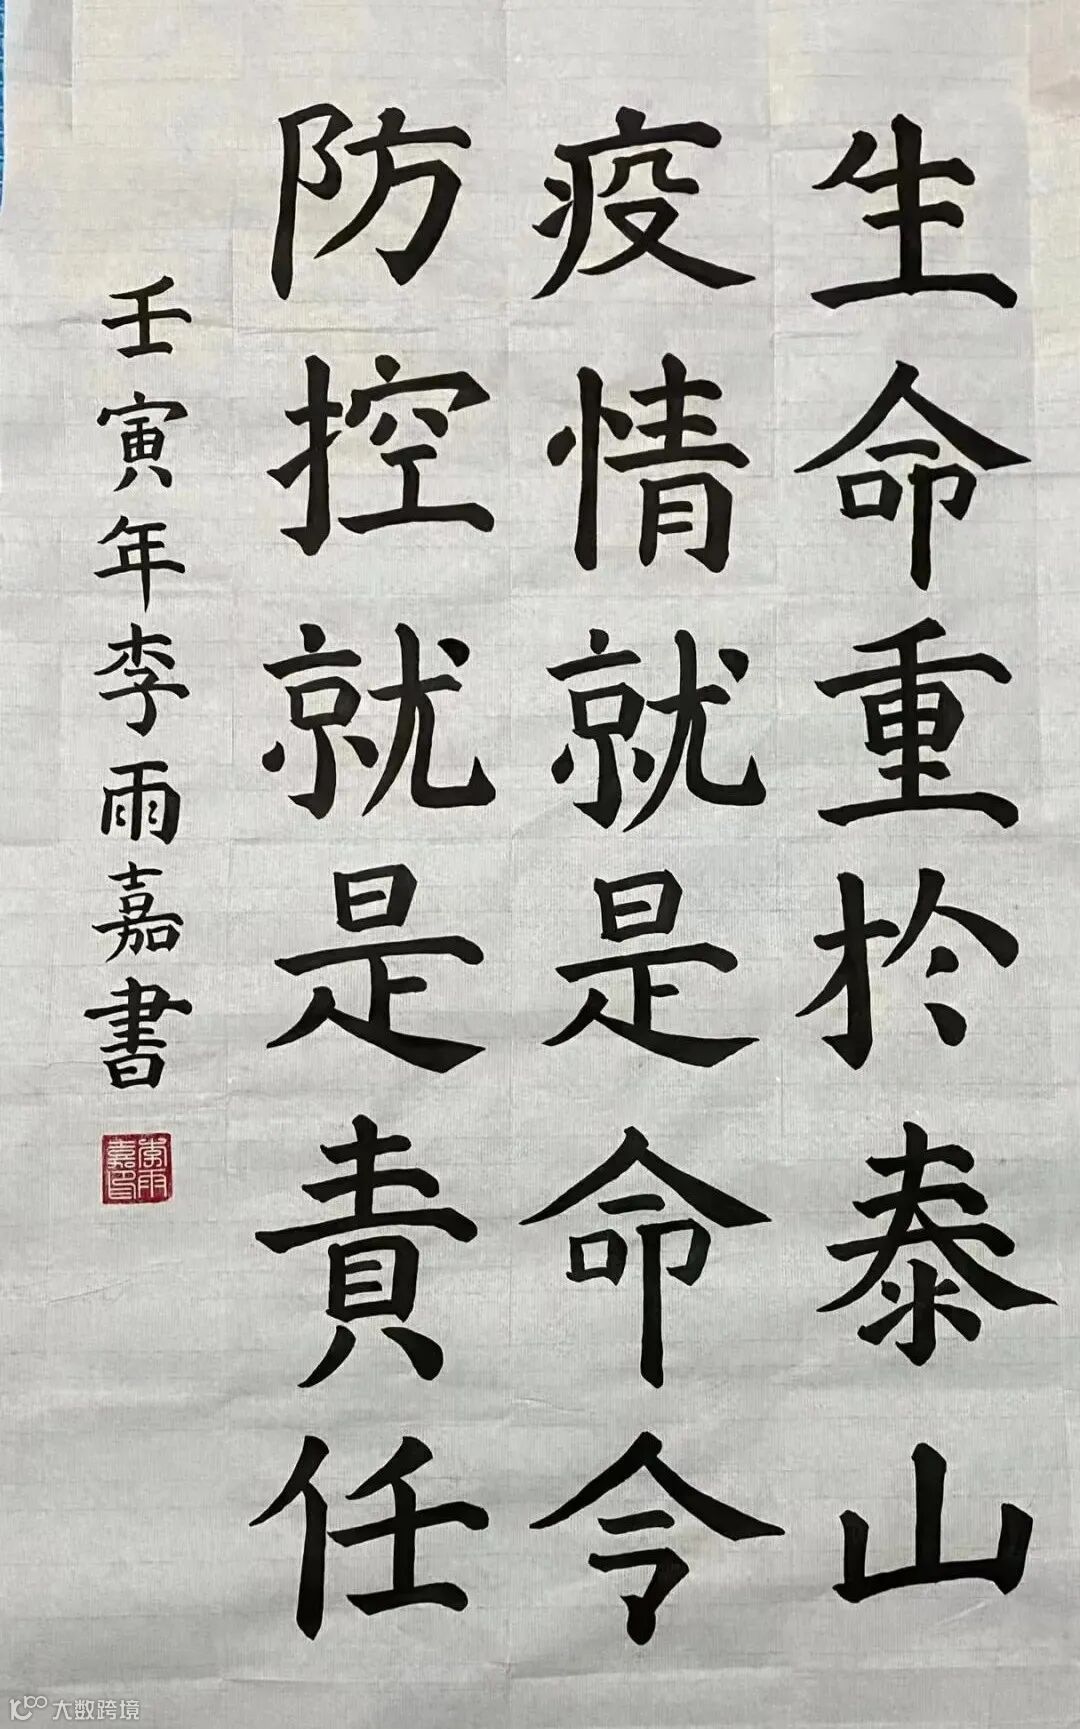 生命重於泰山
疫情就是命令
防控就是責任
壬寅年李雨嘉書
李雨嘉印
大数跨境